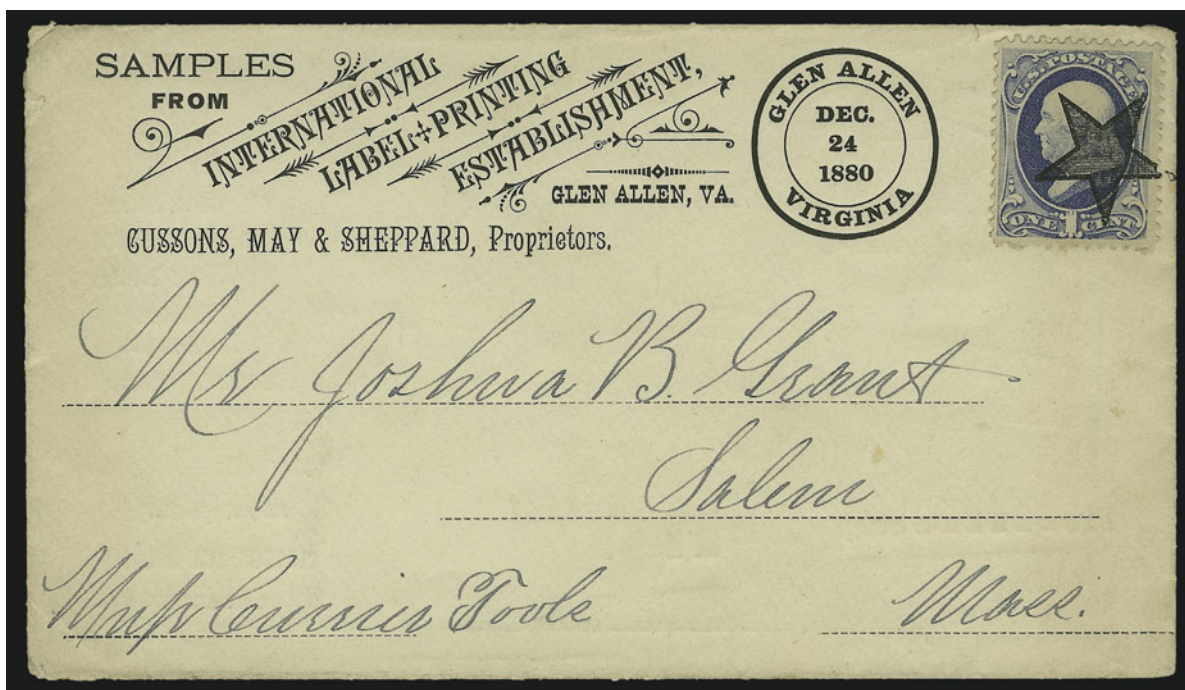 SAMPLES
FROM
INTERNATIONAL
LABEL + PRINTING
ESTABLISHMENT,
GLEN ALLEN, VA.
CUSSONS, MAY & SHEPPARD, Proprietors.
GLEN ALLEN
DEC.
24
1880
VIRGINIA
U.S. POSTAGE
ONE 1 CENT
Mr Joshua B. Grant
Salem
Currier Tools
Mass.